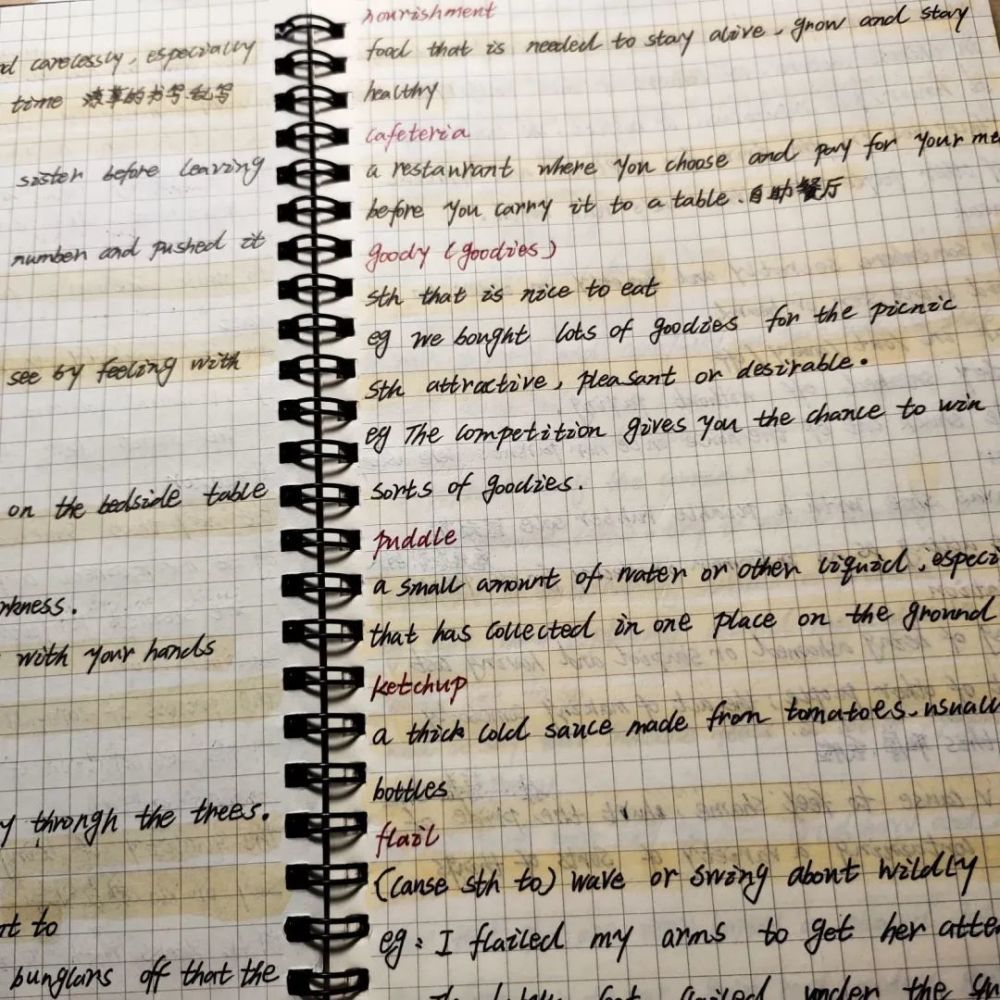 d carelessly, especially
time 潦草的书写.乱写
sister before leaving
number and pushed it
see by feeling with
on the bedside table
rkness.
with your hands
y through the trees.
nt to
bunglars off that the
nourishment
food that is needed to stay alive, grow and stay
healthy
cafeteria
a restaurant where you choose and pay for your me
before you carry it to a table.自助餐厅
goody (goodies)
sth that is nice to eat
eg we bought lots of goodies for the picnic
sth attractive, pleasant or desirable.
eg The competition gives you the chance to win
sorts of goodies.
puddle
a small amount of water or other liquid, especi
that has collected in one place on the ground
ketchup
a thick cold sauce made from tomatoes. usuall
bottles
flail
(cause sth to) wave or swing about wildly
eg: I flailed my arms to get her atte
flailed under the